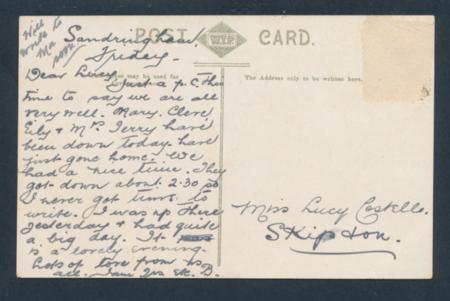 Will
write to
Ma
soon
POST CARD.
Sandringham,
Friday.
may be used for
The Address only to be written here.
Dear Lucy Just a p.c. this
time to say we are all
very well. Mary. Cleve
Eily & Mrs Terry have
been down today. have
just gone home. We
had a nice time. They
got down about 2.30 so
I never got time to
write. I was up there
yesterday & had quite
a big day. It
is a lovely evening.
Lots of love from us
all.
Miss Lucy Costello.
Skipton.